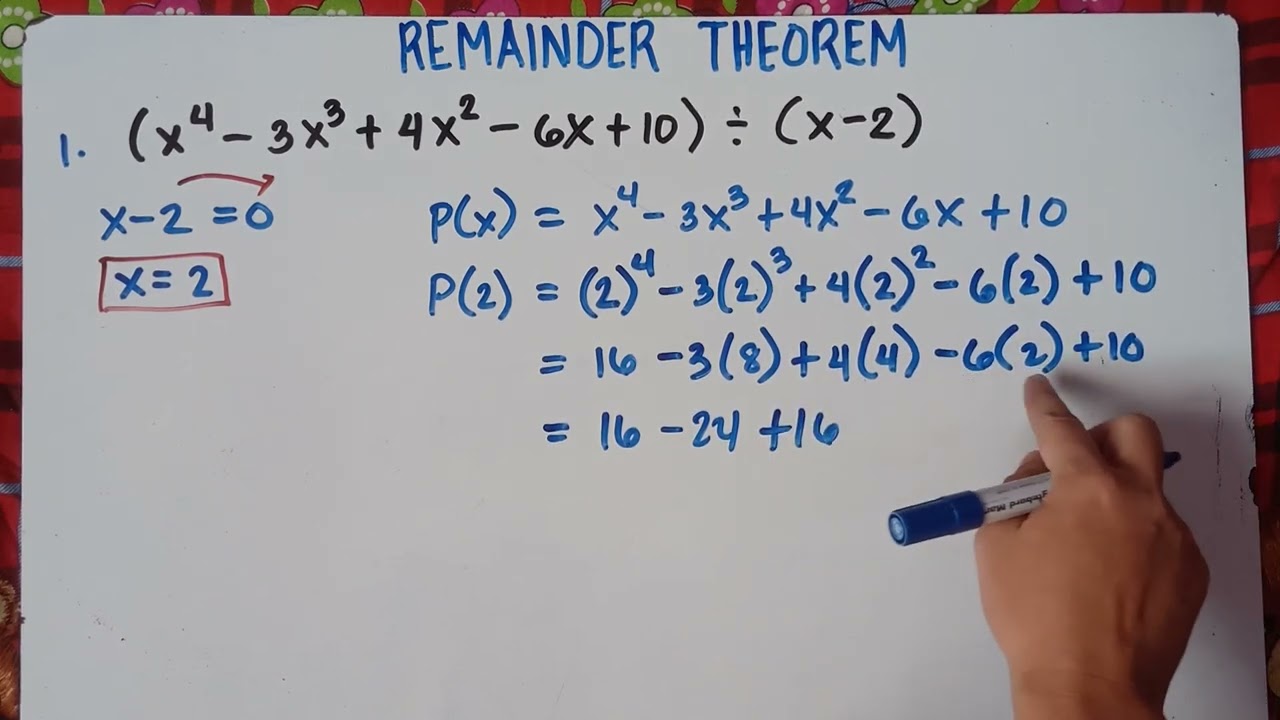 REMAINDER THEOREM
1. (x⁴ - 3x³ + 4x² - 6x + 10) ÷ (x-2)
x-2 = 0
x = 2
P(x) = x⁴ - 3x³ + 4x² - 6x + 10
P(2) = (2)⁴ - 3(2)³ + 4(2)² - 6(2) + 10
= 16 - 3(8) + 4(4) - 6(2) + 10
= 16 - 24 + 16